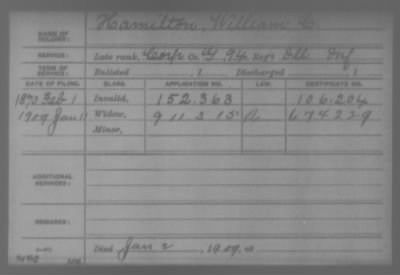 NAME OF SOLDIER: Hamilton, William C.
SERVICE: Late rank, Corp Co. G, 94 Reg't Ill Inf
TERM OF SERVICE: Enlisted , 1 Discharged , 1
DATE OF FILING. CLASS. APPLICATION NO. LAW. CERTIFICATE NO.
1870 Feb 1 Invalid, 152.363 106.204
1909 Jan 11 Widow, 911315 674229
Minor,
ADDITIONAL SERVICES:
REMARKS:
Died Jan 2, 1909, at